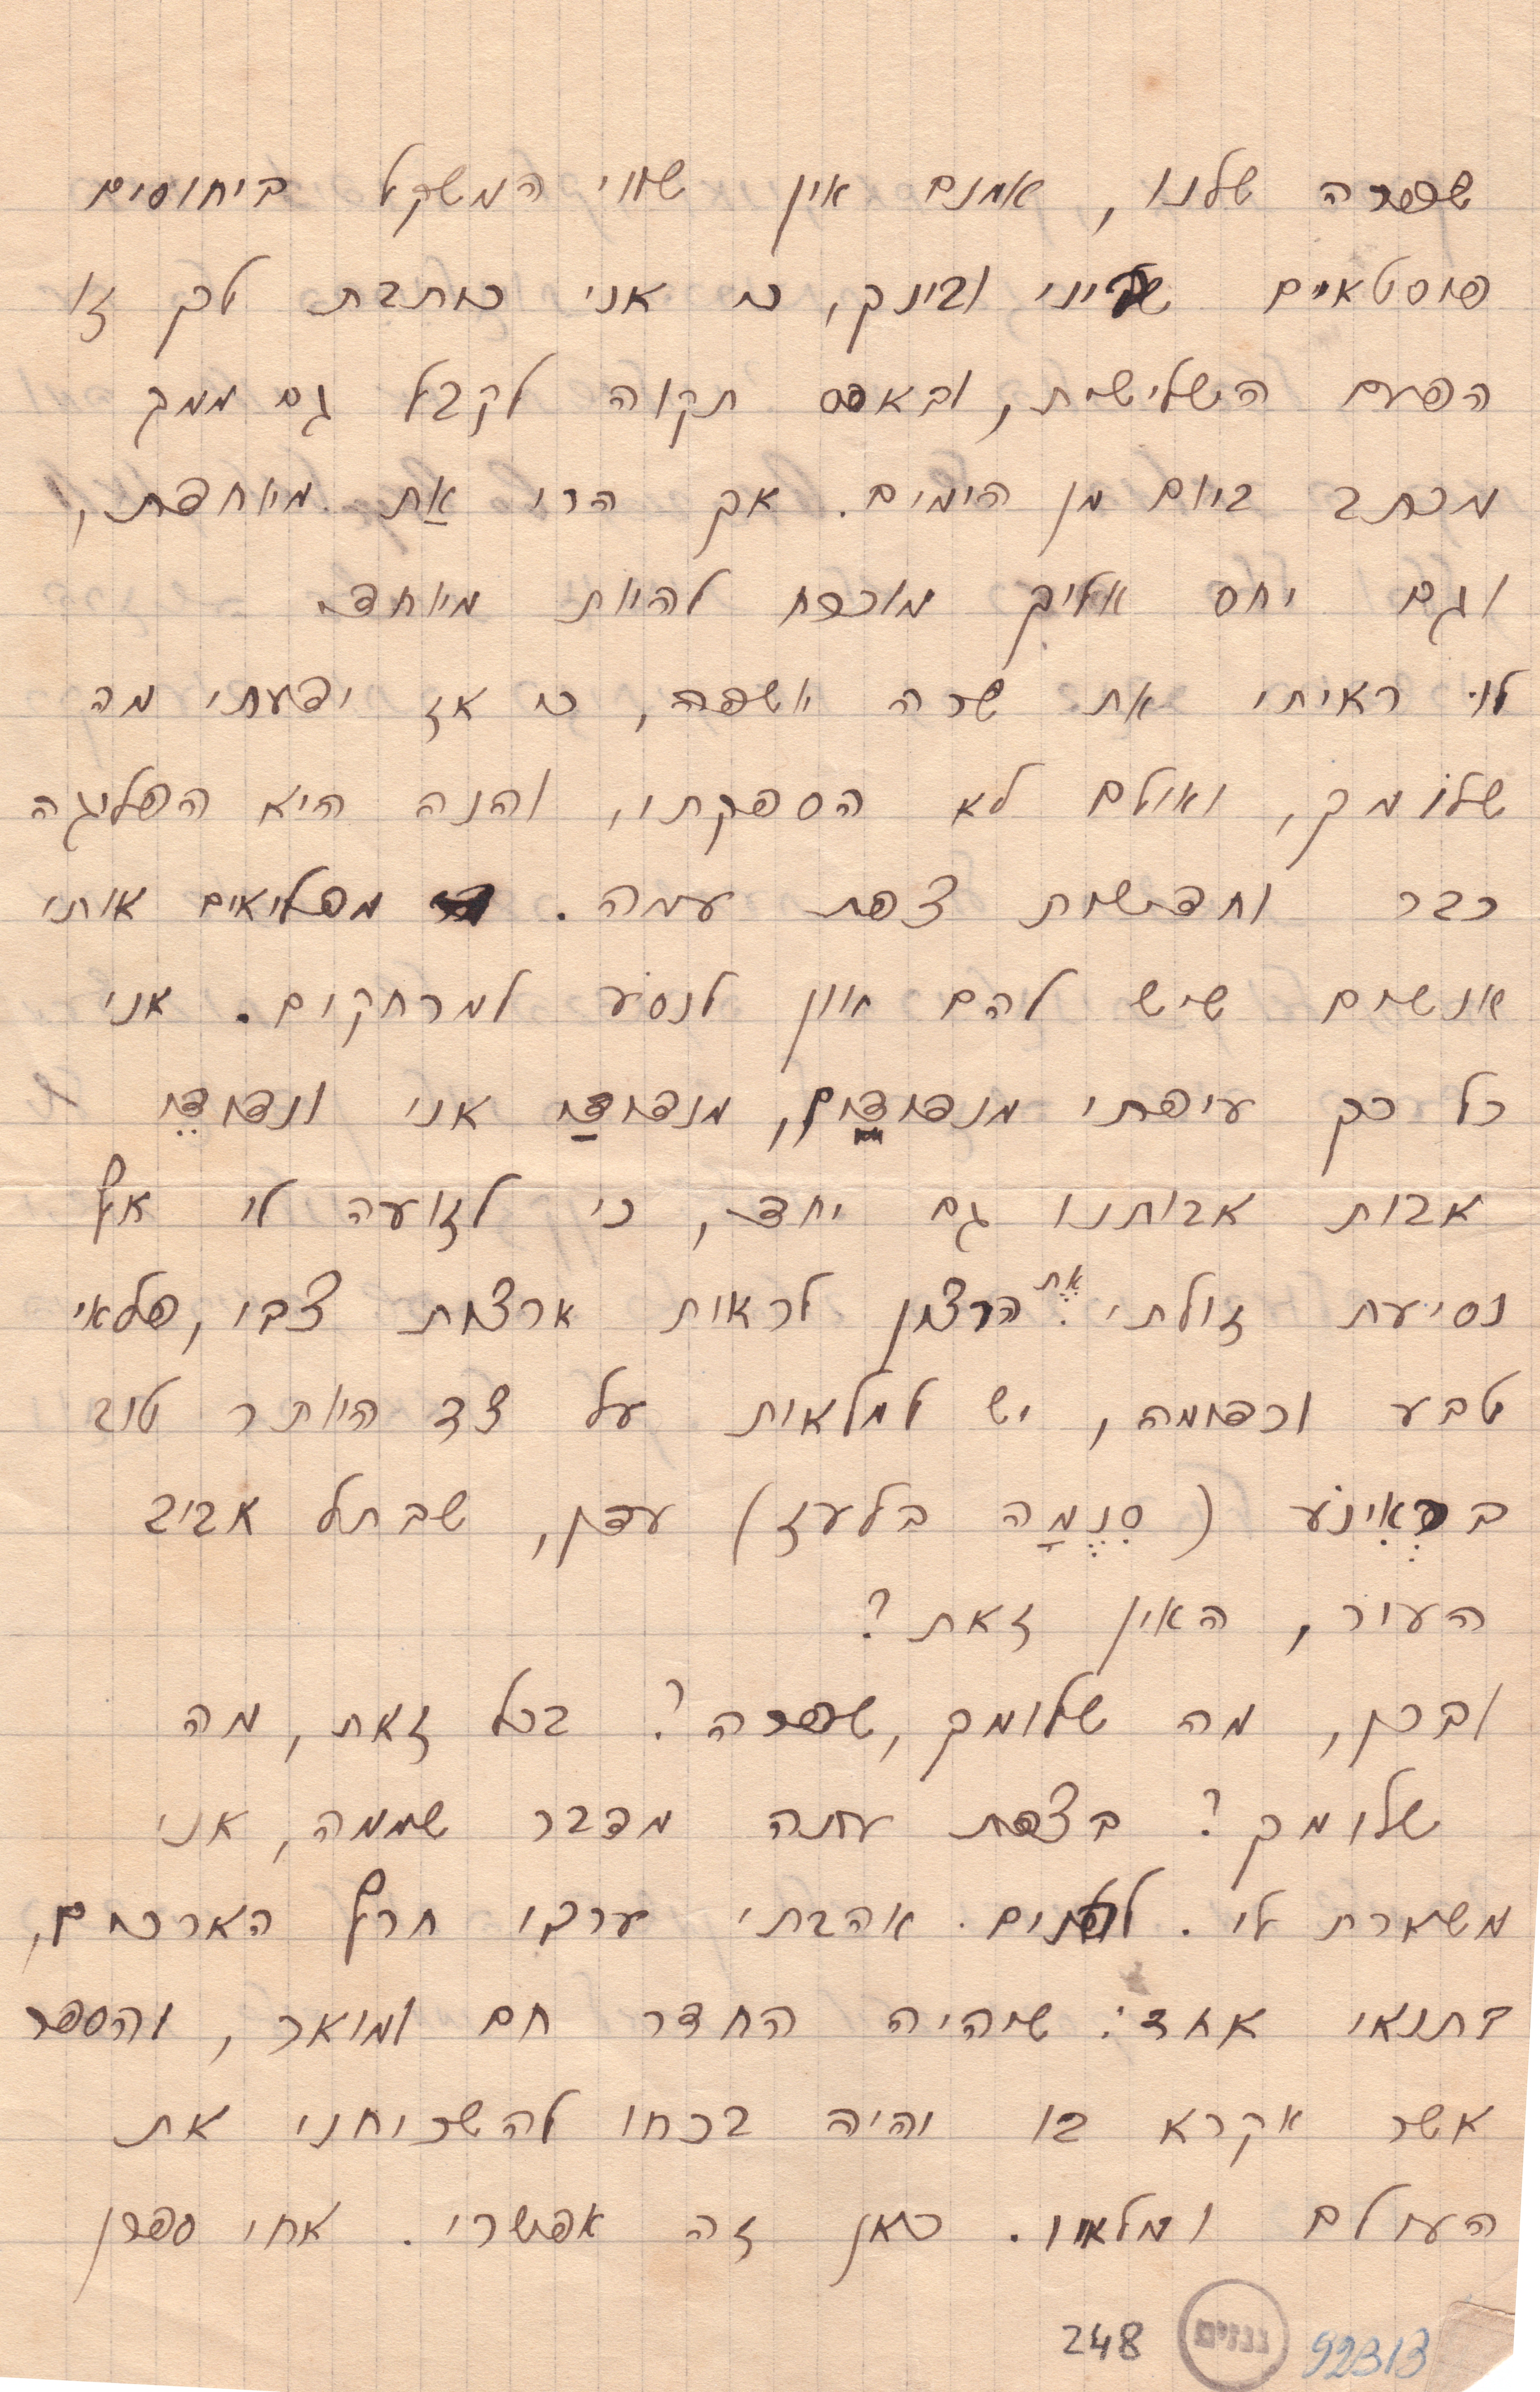 שפרה שלנו, אמנם אין שווי המשקל ביחוסים
פוסטאיים שביני ובינך, כי אני כותבת לך זו
הפעם השלישית, ובאפס תקוה לקבל גם ממך
מכתב ביום מן הימים. אך הרי אַת מיוחדת,
וגם יחס אליך מוכרח להיות מיוחד.
לוּ ראיתי את שרה יושפה, כי אז ידעתי מה
שלומך, ואולם לא הספקתי, והנה היא הפליגה
כבר וחדשות צפת עמה. מפליאים אותי
אנשים שיש להם און לנסוֹע למרחקים. אני
כל כך עיפתי מנדודַים, מנדודַי אני ונדודֵי
אבות אבותנו גם יחד, כי לזועה לי אף
נסיעת זולתי. אֶת הרצון לראות ארצות צבי, פלאי
טבע וכדומה, יש למלאות על צד היותר טוב
בראִינוֹע (סִנֶמָה בלעז) עדן, שבתל אביב
העיר, האין זאת?
ובכן, מה שלומך, שפרה? בכל זאת, מה
שלומך? בצפת עתה מדבר שממה, אני
משארת לי. לפנים אהבתי ערבי חרף הארכים,
בתנאי אחד: שיהיה החדר חם ומואר, והספר
אשר אקרא בו והיה בכחו להשכיחני את
העולם ומלואו. כאן זה אפשרי. אחי ספרן
גנזים
248
92313